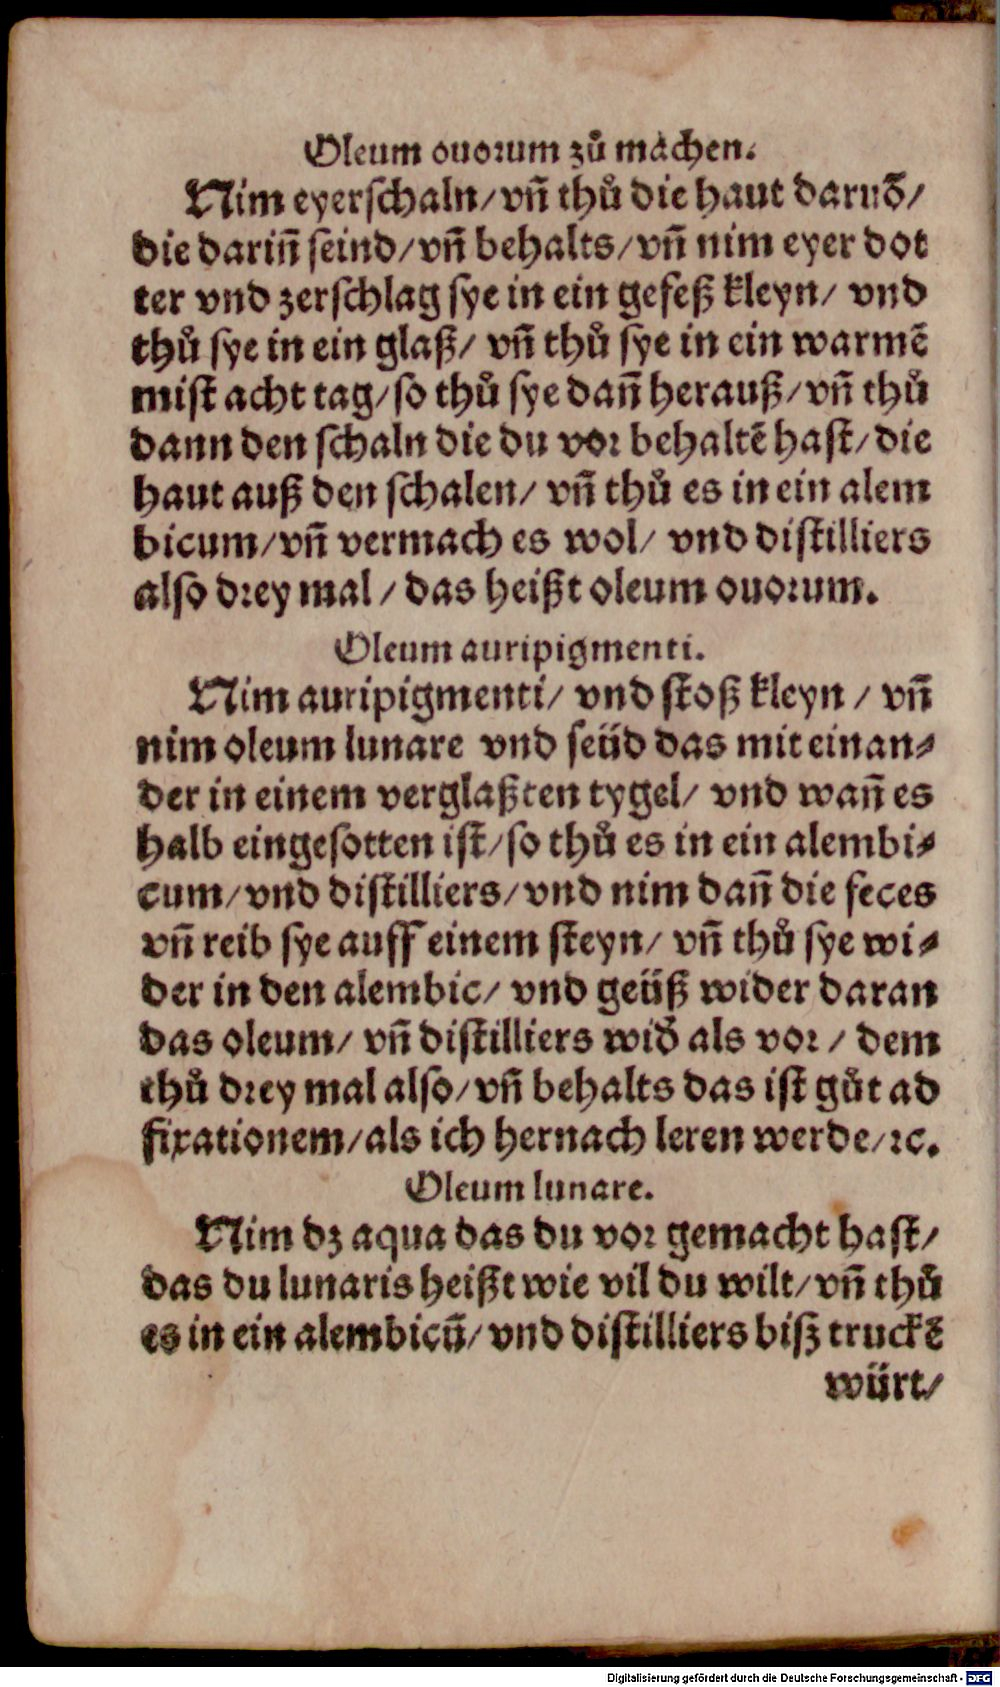 Oleum ouorum zů machen.
Nim eyerschaln/ vñ thů die haut daruō/
die dariñ seind/ vñ behalts/ vñ nim eyer dot
ter vnd zerschlag sye in ein gefeß kleyn/ vnd
thů sye in ein glaß/ vñ thů sye in ein warmē
mist acht tag/ so thů sye dañ herauß/ vñ thů
dann den schaln die du vor behaltē hast/ die
haut auß den schalen/ vñ thů es in ein alem
bicum/ vñ vermach es wol/ vnd distilliers
also drey mal / das heißt oleum ouorum.
Oleum auripigmenti.
Nim auripigmenti/ vnd stoß kleyn / vñ
nim oleum lunare vnd seüd das mit einan-
der in einem verglaßten tygel/ vnd wañ es
halb eingesotten ist/ so thů es in ein alembi-
cum/ vnd distilliers/ vnd nim dañ die feces
vñ reib sye auff einem steyn/ vñ thů sye wi-
der in den alembic/ vnd geüß wider daran
das oleum/ vñ distilliers wid̄ als vor / dem
thů drey mal also/ vñ behalts das ist gůt ad
fixationem/ als ich hernach leren werde/ ꝛc.
Oleum lunare.
Nim dz aqua das du vor gemacht hast/
das du lunaris heißt wie vil du wilt/ vñ thů
es in ein alembicū/ vnd distilliers biß truckē
würt/
Digitalisierung gefördert durch die Deutsche Forschungsgemeinschaft - DFG